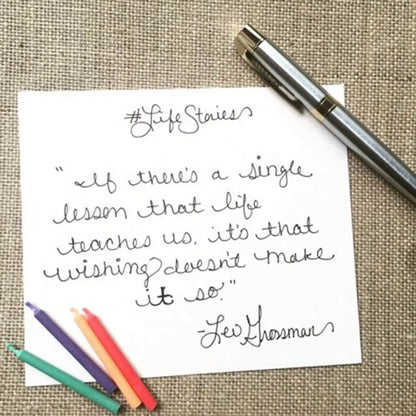 #LifeStories
"If there's a single
lesson that life
teaches us, it's that
wishing doesn't make
it so."
-Lev Grossman